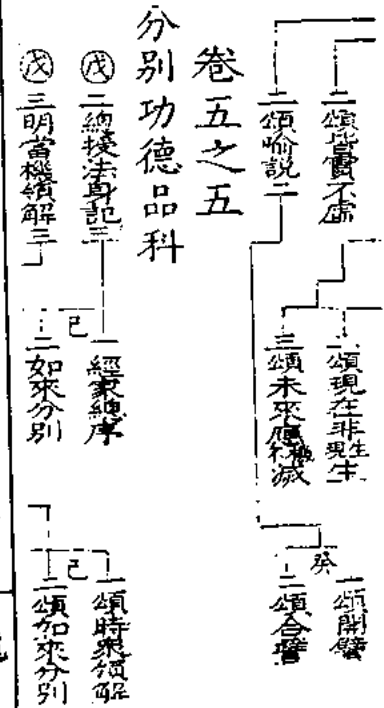 二頌皆實不虛
二頌喻說二
二頌現在非生現生
三頌未來應機不滅
癸
一頌開譬
二頌合譬
卷五之五
分別功德品科
戊 二總授法身記三
戊 三明當機領解三
己
一經家總序
二如來分別
己
一頌時眾領解
二頌如來分別